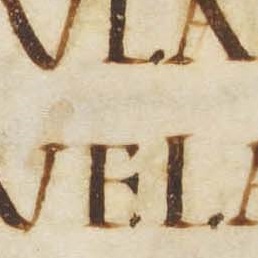 VLA
VELA